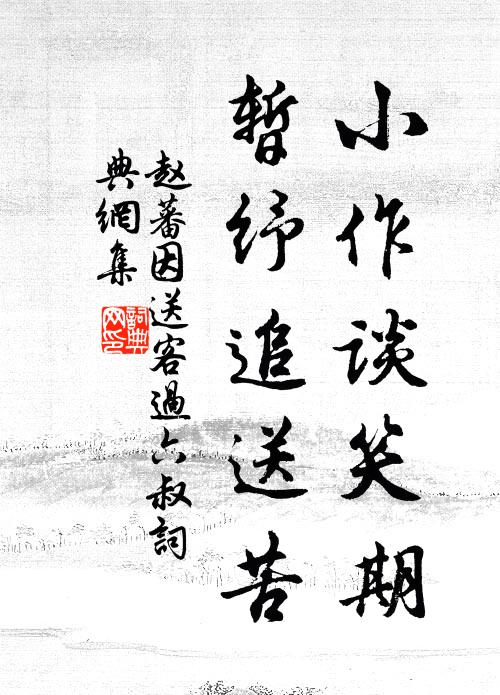 小作谈笑期
暂纾追送苦
赵蕃因送客過六叔詞
典網集
詞典
网印